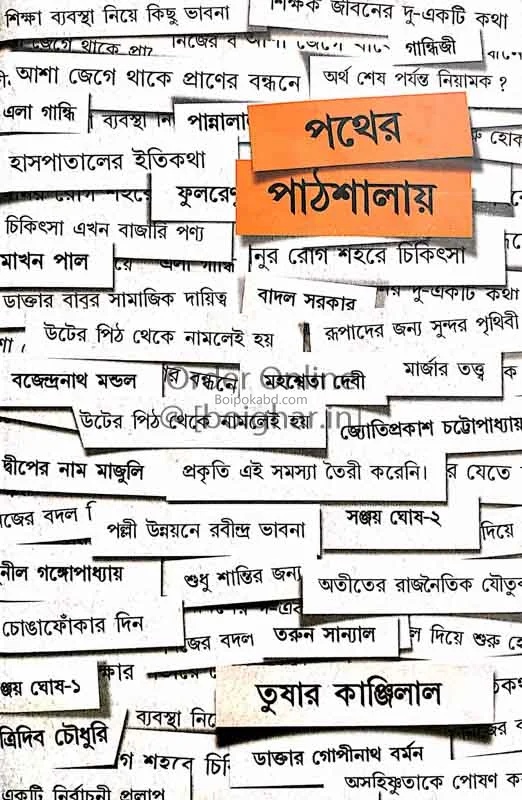 শিক্ষা ব্যবস্থা নিয়ে কিছু ভাবনা
শিক্ষক জীবনের দু-একটি কথা
জেগে থাকে প্রা
নিজের ব
গান্ধিজী
আশা জেগে থাকে প্রাণের বন্ধনে
অর্থ শেষ পর্যন্ত নিয়ামক ?
এলা গান্ধি
ব্যবস্থা নি
পান্নালা
পথের
হাসপাতালের ইতিকথা
ফুলরে
পাঠশালায়
চিকিৎসা এখন বাজারি পণ্য
নুর রোগ শহরে চিকিৎসা
মাখন পাল
য়ে এলা গান্ধি
ডাক্তার বাবুর সামাজিক দায়িত্ব
বাদল সরকার
দু-একটি কথা
উটের পিঠ থেকে নামলেই হয়
রূপাদের জন্য সুন্দর পৃথিবী
মার্জার তত্ত্ব
ক
Order Online
বজেন্দ্রনাথ মন্ডল
র বন্ধনে
মহাশ্বেতা দেবী
Boipokabd.com
@ [boighar.in]
উটের পিঠ থেকে নামলেই হয়
জ্যোতিপ্রকাশ চট্টোপাধ্যায়
দ্বীপের নাম মাজুলি
প্রকৃতি এই সমস্যা তৈরী করেনি।
র যেতে
জের বদল
পল্লী উন্নয়নে রবীন্দ্র ভাবনা
সঞ্জয় ঘোষ-২
দিয়ে
নীল গঙ্গোপাধ্যায়
শুধু শান্তির জন্য
অতীতের রাজনৈতিক যৌতুক
চোঙাফোঁকার দিন
জের বদল
তরুন সান্যাল
ল দিয়ে শুরু হে
ঞ্জয় ঘোষ-১
ক্ষার
তুষার কাঞ্জিলাল
ব্যবস্থা নিয়ে
ত্রিদিব চৌধুরি
গ শহরে চি
ডাক্তার গোপীনাথ বর্মন
অসহিষ্ণুতাকে পোষণ ক
একটি নির্বাচনী প্রলাপ